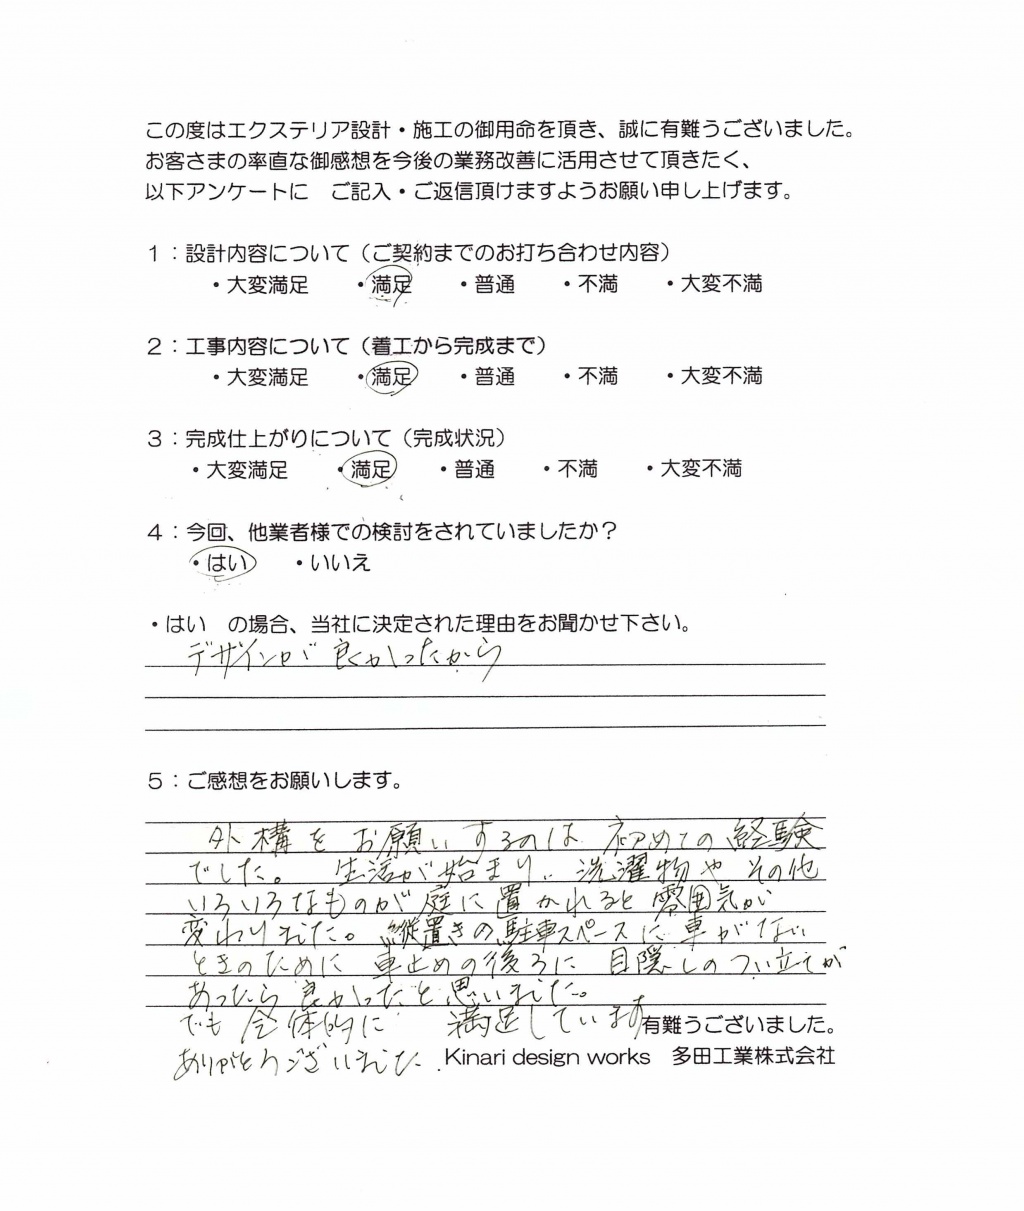 この度はエクステリア設計・施工の御用命を頂き、誠に有難うございました。
お客さまの率直な御感想を今後の業務改善に活用させて頂きたく、
以下アンケートに　ご記入・ご返信頂けますようお願い申し上げます。
1：設計内容について（ご契約までのお打ち合わせ内容）
・大変満足　・満足　・普通　・不満　・大変不満
2：工事内容について（着工から完成まで）
・大変満足　・満足　・普通　・不満　・大変不満
3：完成仕上がりについて（完成状況）
・大変満足　・満足　・普通　・不満　・大変不満
4：今回、他業者様での検討をされていましたか？
・はい　・いいえ
・はい　の場合、当社に決定された理由をお聞かせ下さい。
デザインが良かったから
5：ご感想をお願いします。
外構をお願いするのは初めての経験
でした。生活が始まり、洗濯物やその他
いろいろなものが庭に置かれると雰囲気が
変わりました。縦置きの駐車スペースに車がない
ときのために車止めの後ろに目隠しのつい立てが
あったら良かったと思いました。
でも全体的に　満足しています　有難うございました。
ありがとうございました. Kinari design works　多田工業株式会社